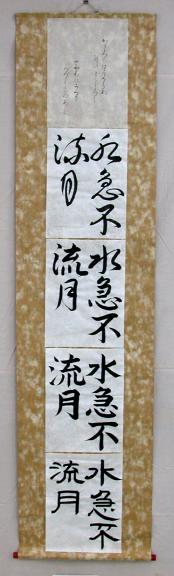 水急不
流月
水急不
流月
水急不
流月
水急不
流月